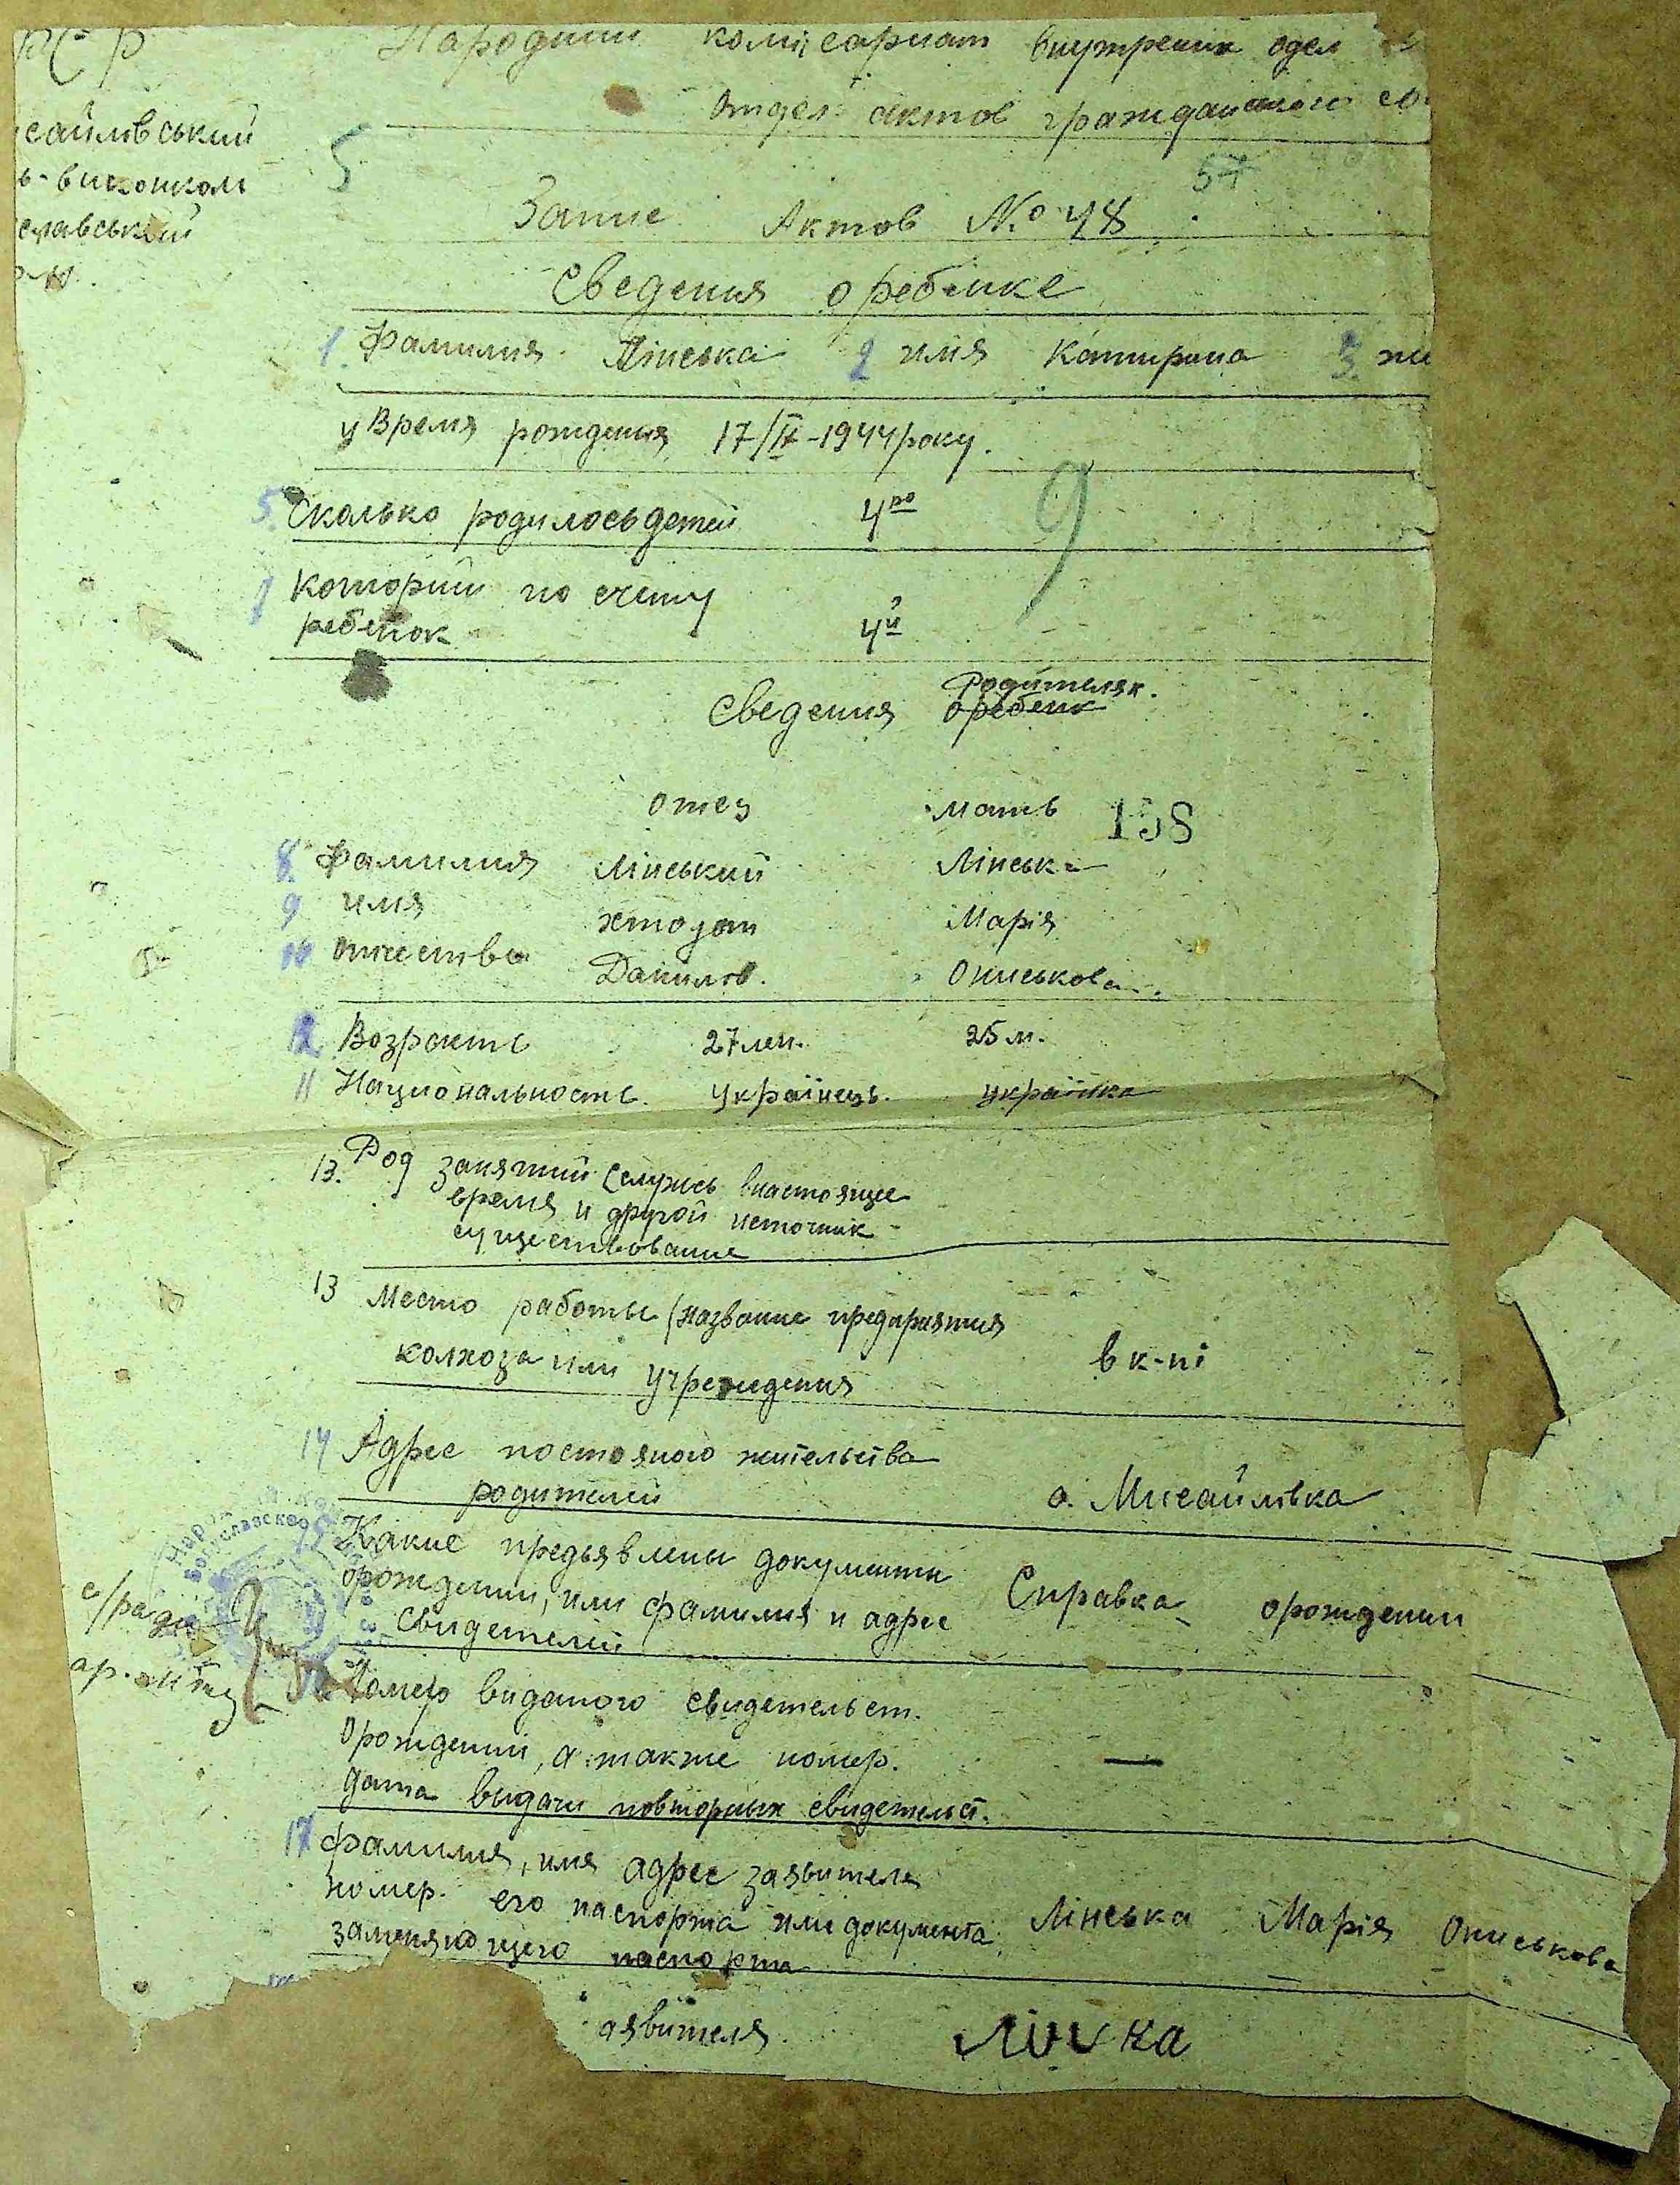 РСР
Народний комісариат внутрених одел
Отдел актов гражданского со
сайлівський
ь-виконком
славський
р-н.
5
57
Запис Актов № 48
Сведения о ребенке
1. Фамилия Лінська 2 имя Катирина 3. жи
4 Время рождения 17/IV-1944 року.
5. Сколько родилось детей 4ро
9
Которий по счету
ребенок 4й
Сведения Родителях.
о ребенк
отец мать 158
8. Фамилия Лінський Лінська
9 имя Марія
10 отчество Данилов. Ониськова.
12 Возрасть 27 лет. 25 л.
11 Национальность. Українець. українка
13. Род занятий (служись внастоящее
время и другой источник
существование
13 Место работы (название предприятия
колхоза или учреждения в к-пі
14 Адрес постояного жительства
родителей с. Мисайлівка
Богуславского
Какие предьявлены документы
орождении, или фамилия и адрес Справка орождении
свидетелей
с/ради
Номер виданого свидетельст.
орождении, а также номер. —
дата выдачи повторных свидетельст.
17 Фамилия, имя адрес заявителя
номер. его паспорта или документа, Лінська Марія Ониськова
заменяющего паспорта
аявителя. Лінска